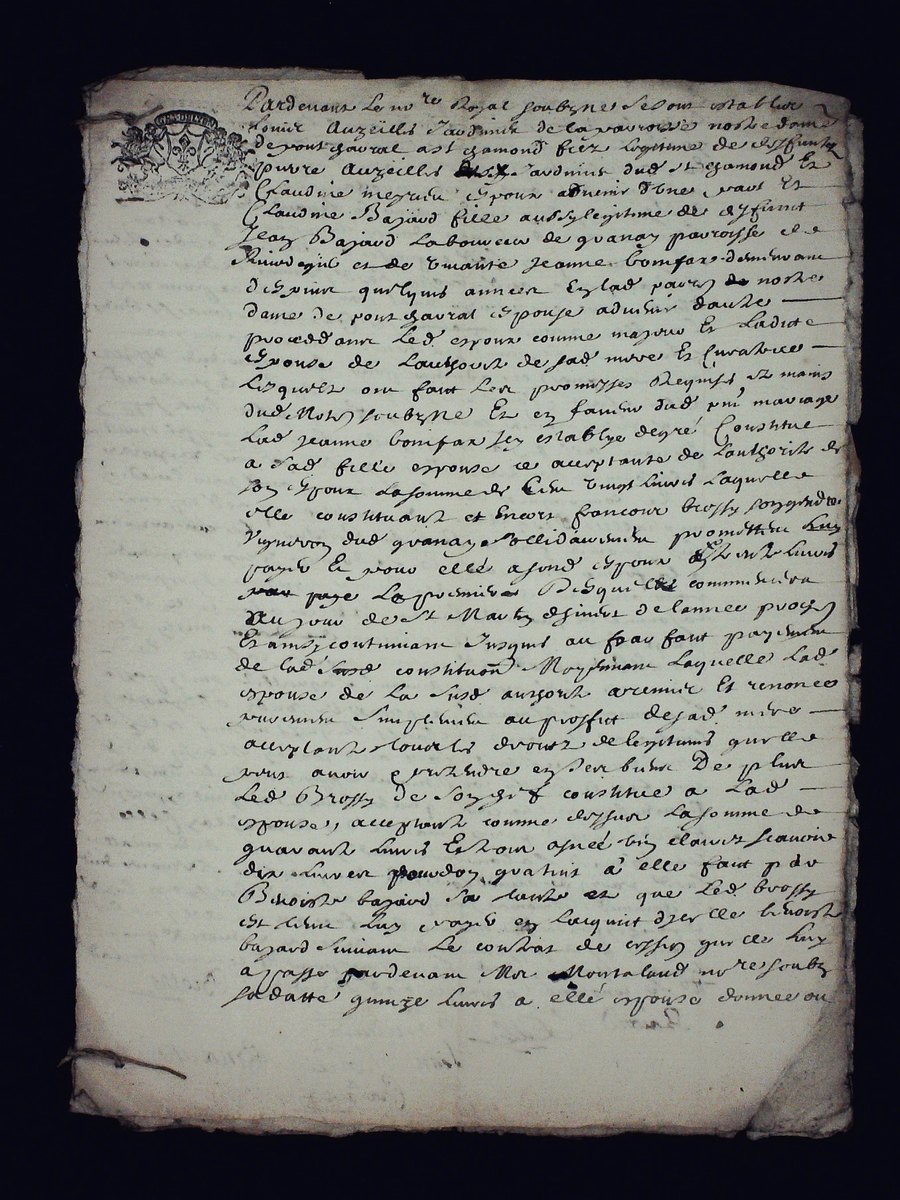 Pardevant le no re Royal soubz.ne se sont establis
Louis Auzeills Jardinier de la parroisse nostre dame
de pont chavral a st chamond filz legitime de deffunt
pierre Auzeills Jardinier dud st chamond Et
Claudine espoux advenir d'Une part Et
Claudine Bajard fille aussy legitime de deffunt
Jean Bajard Laboureur de granay parroisse de
et de vivante Jeanne bonfar demeurant
despuis quelques annees En lad parr nostre
dame de pont chavral espouse advenir d'autre
procedant Led espoux comme majeur Et Ladicte
espouse de L'authorité de sad mere Et Curatrice
Lesquels ont faict Les promesses Requises Ez mains
dud No re soubz.ne Et en faveur dud pnt mariage
Lad Jeanne bonfar Icy establye de gré Constitue
a sad fille espouse ce acceptante de L'authorité de
son espoux La somme de vingt Livres Laquelle
elle constituant et Encore francois brossy son gendre
Vigneron dud granay sollidairement promettent Luy
payer Et pour elle a sond espoux Livres
La premiere Desquelles commencera
Au jour de St Martin de L'annee proch
Et ainsy continuant Jusques au faict payement
de lad constituon Moyenant Laquelle Lad
espouse de La susd authorité a renoncé Et renonce
purement simplement au proffict de sad mere
acceptant tous les droicts de legitimes quelle
peut avoir pretendre en ses biens De plus
Led Brossy de son chef constitue a Lad
espouse, acceptant comme dessus La somme de
quarante Livres scavoir
dix Livres pour don gratuit a elle faict par
Benoiste bajard sa tante et que Led brossy
est tenu Luy payer en L'acquit d'icelle benoiste
bajard suivant Le contrat de quelle Luy
a passé pardevant Me Montaland no re soubz
sa datte quinze Livres a elle espouse donnee ou